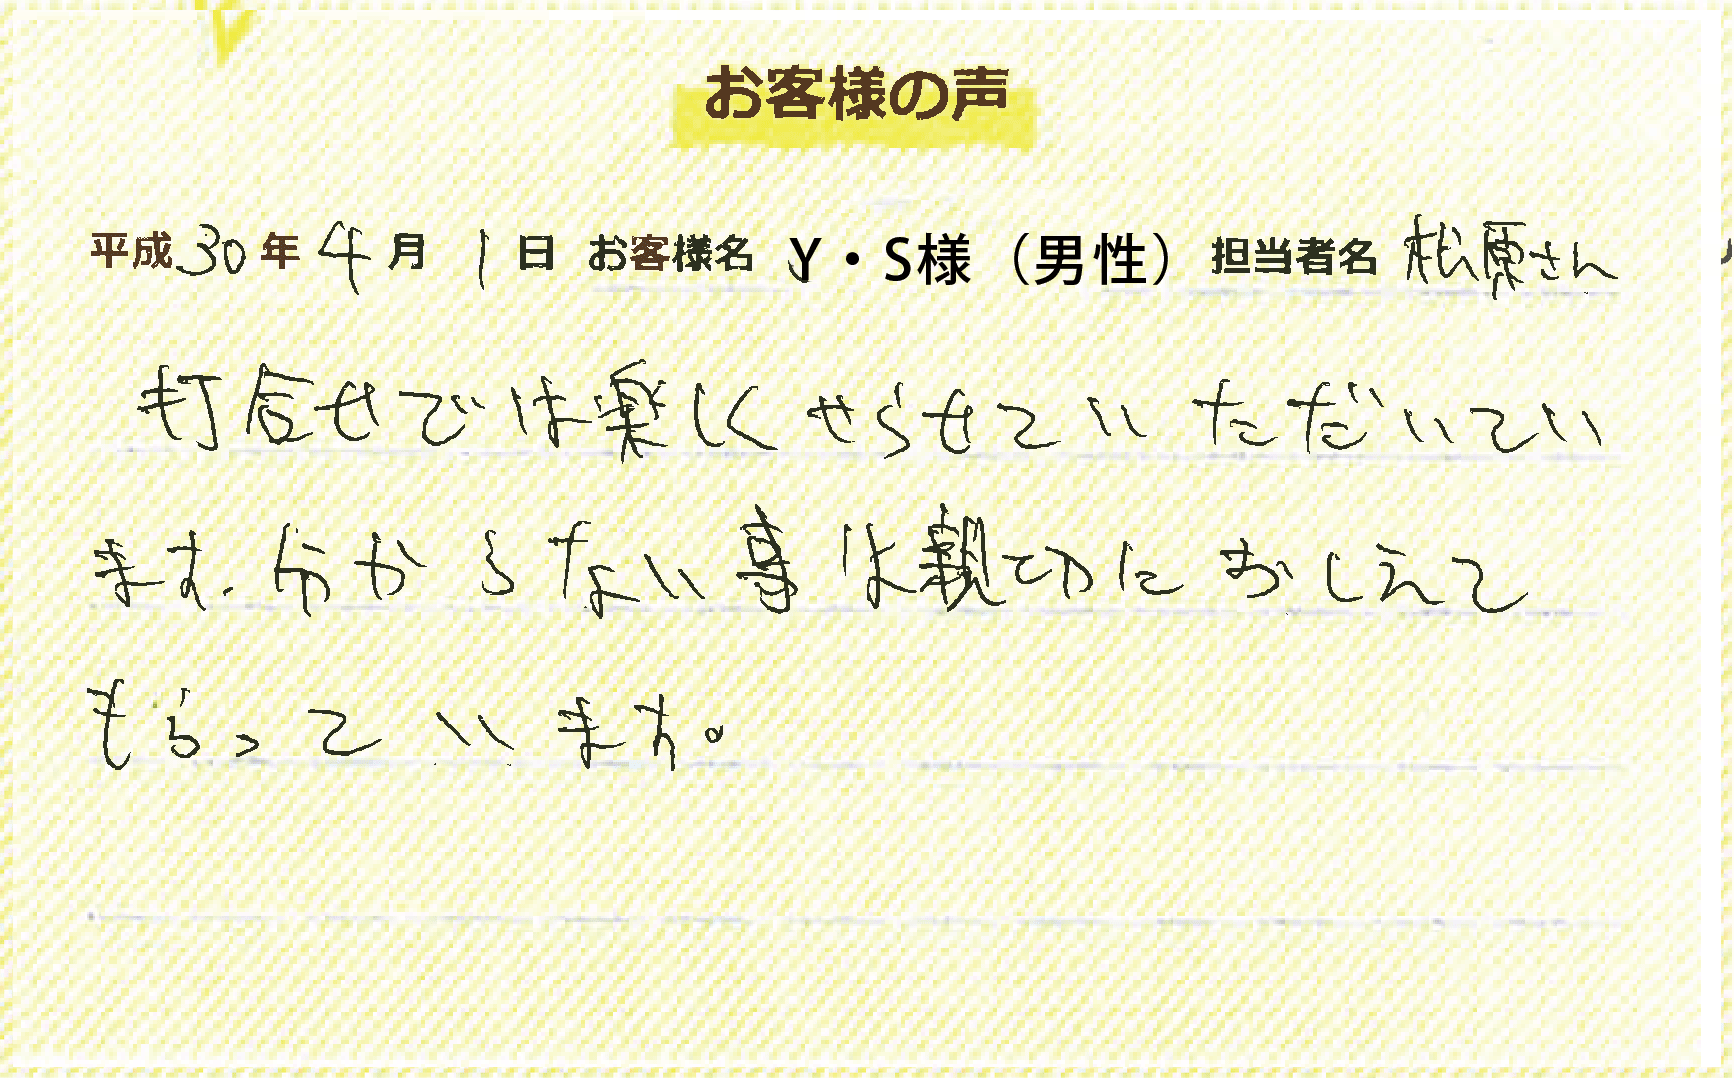 お客様の声
平成30年4月1日 お客様名 Y・S様（男性） 担当者名 松原さん
打合せでは楽しくせらせていただいてい
ます.分からない事は親切におしえて
もらっています。